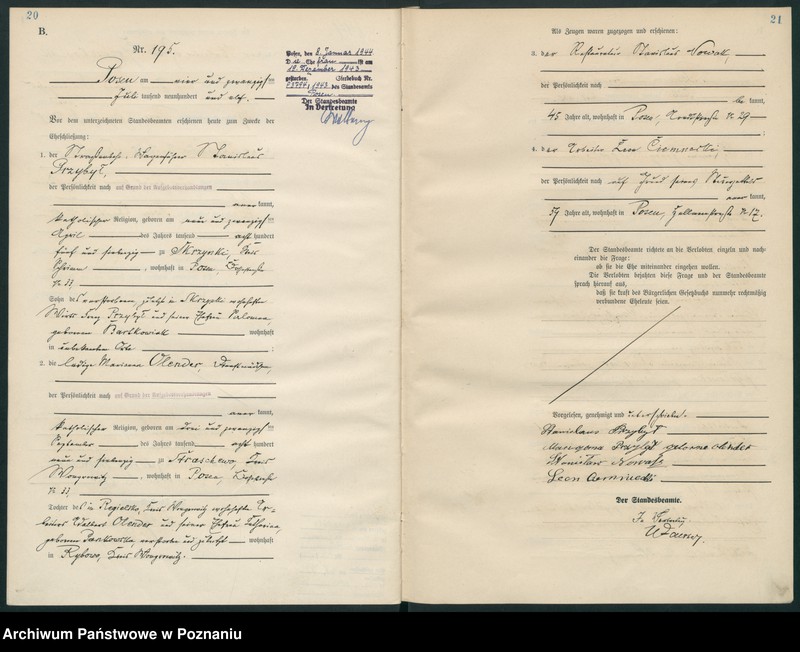 20
B.
Nr. 195.
Posen, den 8. Januar 1944
D Ehe ist am
19. Dezember 1943
gestorben Sterbebuch Nr.
1943 des Standesamts
Posen.
Der Standesbeamte
In Vertretung
Posen am vier und zwanzigsten
Juli tausend neunhundert und elf.
Vor dem unterzeichneten Standesbeamten erschienen heute zum Zwecke der
Eheschließung:
1. der Stanislaus
Przybyl,
der Persönlichkeit nach auf Grund der
kannt,
katholischer Religion, geboren am neun und zwanzigsten
April des Jahres tausend acht hundert
fünf und siebenzig zu Skrzynki, Kreis
Schrimm, wohnhaft in Posen,
Sohn des verstorbenen, zuletzt in wohnhaften
Wirts Franz Przybyl und seiner Ehefrau Salomea,
geborenen Bartkowiak wohnhaft
in unbekannten Orte
2. die ledige Marianna Olender,
der Persönlichkeit nach auf Grund der
kannt,
katholischer Religion, geboren am drei und zwanzigsten
September des Jahres tausend acht hundert
neun und siebenzig zu Straschewo, Kreis
Wongrowitz, wohnhaft in Posen,
Tochter des in Kreis Wongrowitz wohnhaften
Olender und seiner Ehefrau Katharina,
geborenen verstorben und zuletzt wohnhaft
in Rybowo, Kreis Wongrowitz.
21
Als Zeugen waren zugezogen und erschienen:
3. der Restaurateur Stanislaus Nowak,
der Persönlichkeit nach
be kannt,
45 Jahre alt, wohnhaft in Posen, 29
4. der Arbeiter Leon
der Persönlichkeit nach auf Grund seines
kannt,
37 Jahre alt, wohnhaft in Posen, 17.
Der Standesbeamte richtete an die Verlobten einzeln und nach-
einander die Frage:
ob sie die Ehe miteinander eingehen wollen.
Die Verlobten bejahten diese Frage und der Standesbeamte
sprach hierauf aus,
daß sie kraft des Bürgerlichen Gesetzbuchs nunmehr rechtmäßig
verbundene Eheleute seien.
Vorgelesen, genehmigt und unterschrieben.
Stanislaus Przybyl
Maryanna Przybył geborene Olender
Stanislaus Nowak
Leon
Der Standesbeamte.
In Vertretung
Archiwum Państwowe w Poznaniu